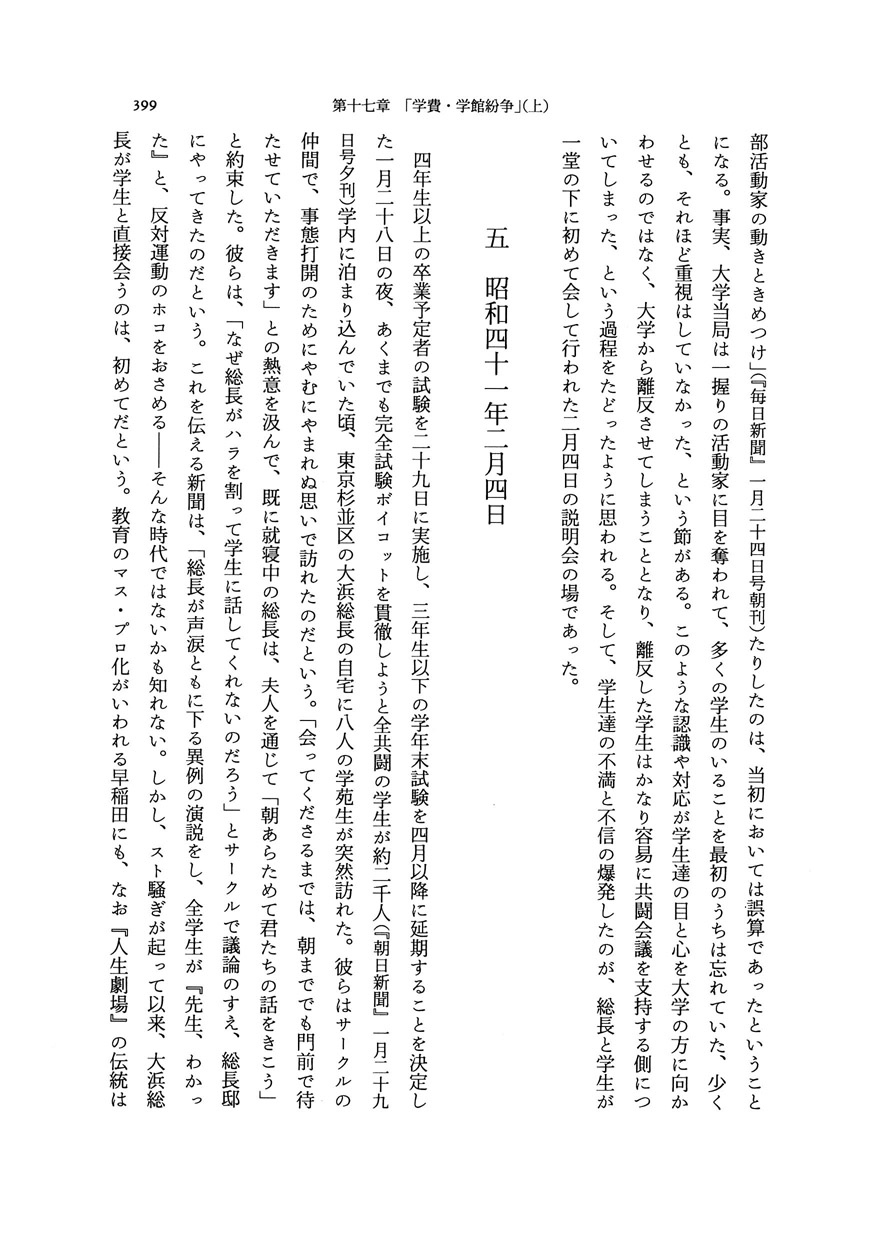 399
第十七章 「学費・学館紛争」（上）
部活動家の動きときめつけ」（『毎日新聞』一月二十四日号朝刊）たりしたのは、当初においては誤算であったということ
になる。事実、大学当局は一握りの活動家に目を奪われて、多くの学生のいることを最初のうちは忘れていた、少く
とも、それほど重視はしていなかった、という節がある。このような認識や対応が学生達の目と心を大学の方に向か
わせるのではなく、大学から離反させてしまうこととなり、離反した学生はかなり容易に共闘会議を支持する側につ
いてしまった、という過程をたどったように思われる。そして、学生達の不満と不信の爆発したのが、総長と学生が
一堂の下に初めて会して行われた二月四日の説明会の場であった。
五 昭和四十一年二月四日
四年生以上の卒業予定者の試験を二十九日に実施し、三年生以下の学年末試験を四月以降に延期することを決定し
た一月二十八日の夜、あくまでも完全試験ボイコットを貫徹しようと全共闘の学生が約二千人（『朝日新聞』一月二十九
日号夕刊）学内に泊まり込んでいた頃、東京杉並区の大浜総長の自宅に八人の学苑生が突然訪れた。彼らはサークルの
仲間で、事態打開のためにやむにやまれぬ思いで訪れたのだという。「会ってくださるまでは、朝まででも門前で待
たせていただきます」との熱意を汲んで、既に就寝中の総長は、夫人を通じて「朝あらためて君たちの話をきこう」
と約束した。彼らは、「なぜ総長がハラを割って学生に話してくれないのだろう」とサークルで議論のすえ、総長邸
にやってきたのだという。これを伝える新聞は、「総長が声涙ともに下る異例の演説をし、全学生が『先生、わかっ
た』と、反対運動のホコをおさめる――そんな時代ではないかも知れない。しかし、スト騒ぎが起って以来、大浜総
長が学生と直接会うのは、初めてだという。教育のマス・プロ化がいわれる早稲田にも、なお『人生劇場』の伝統は